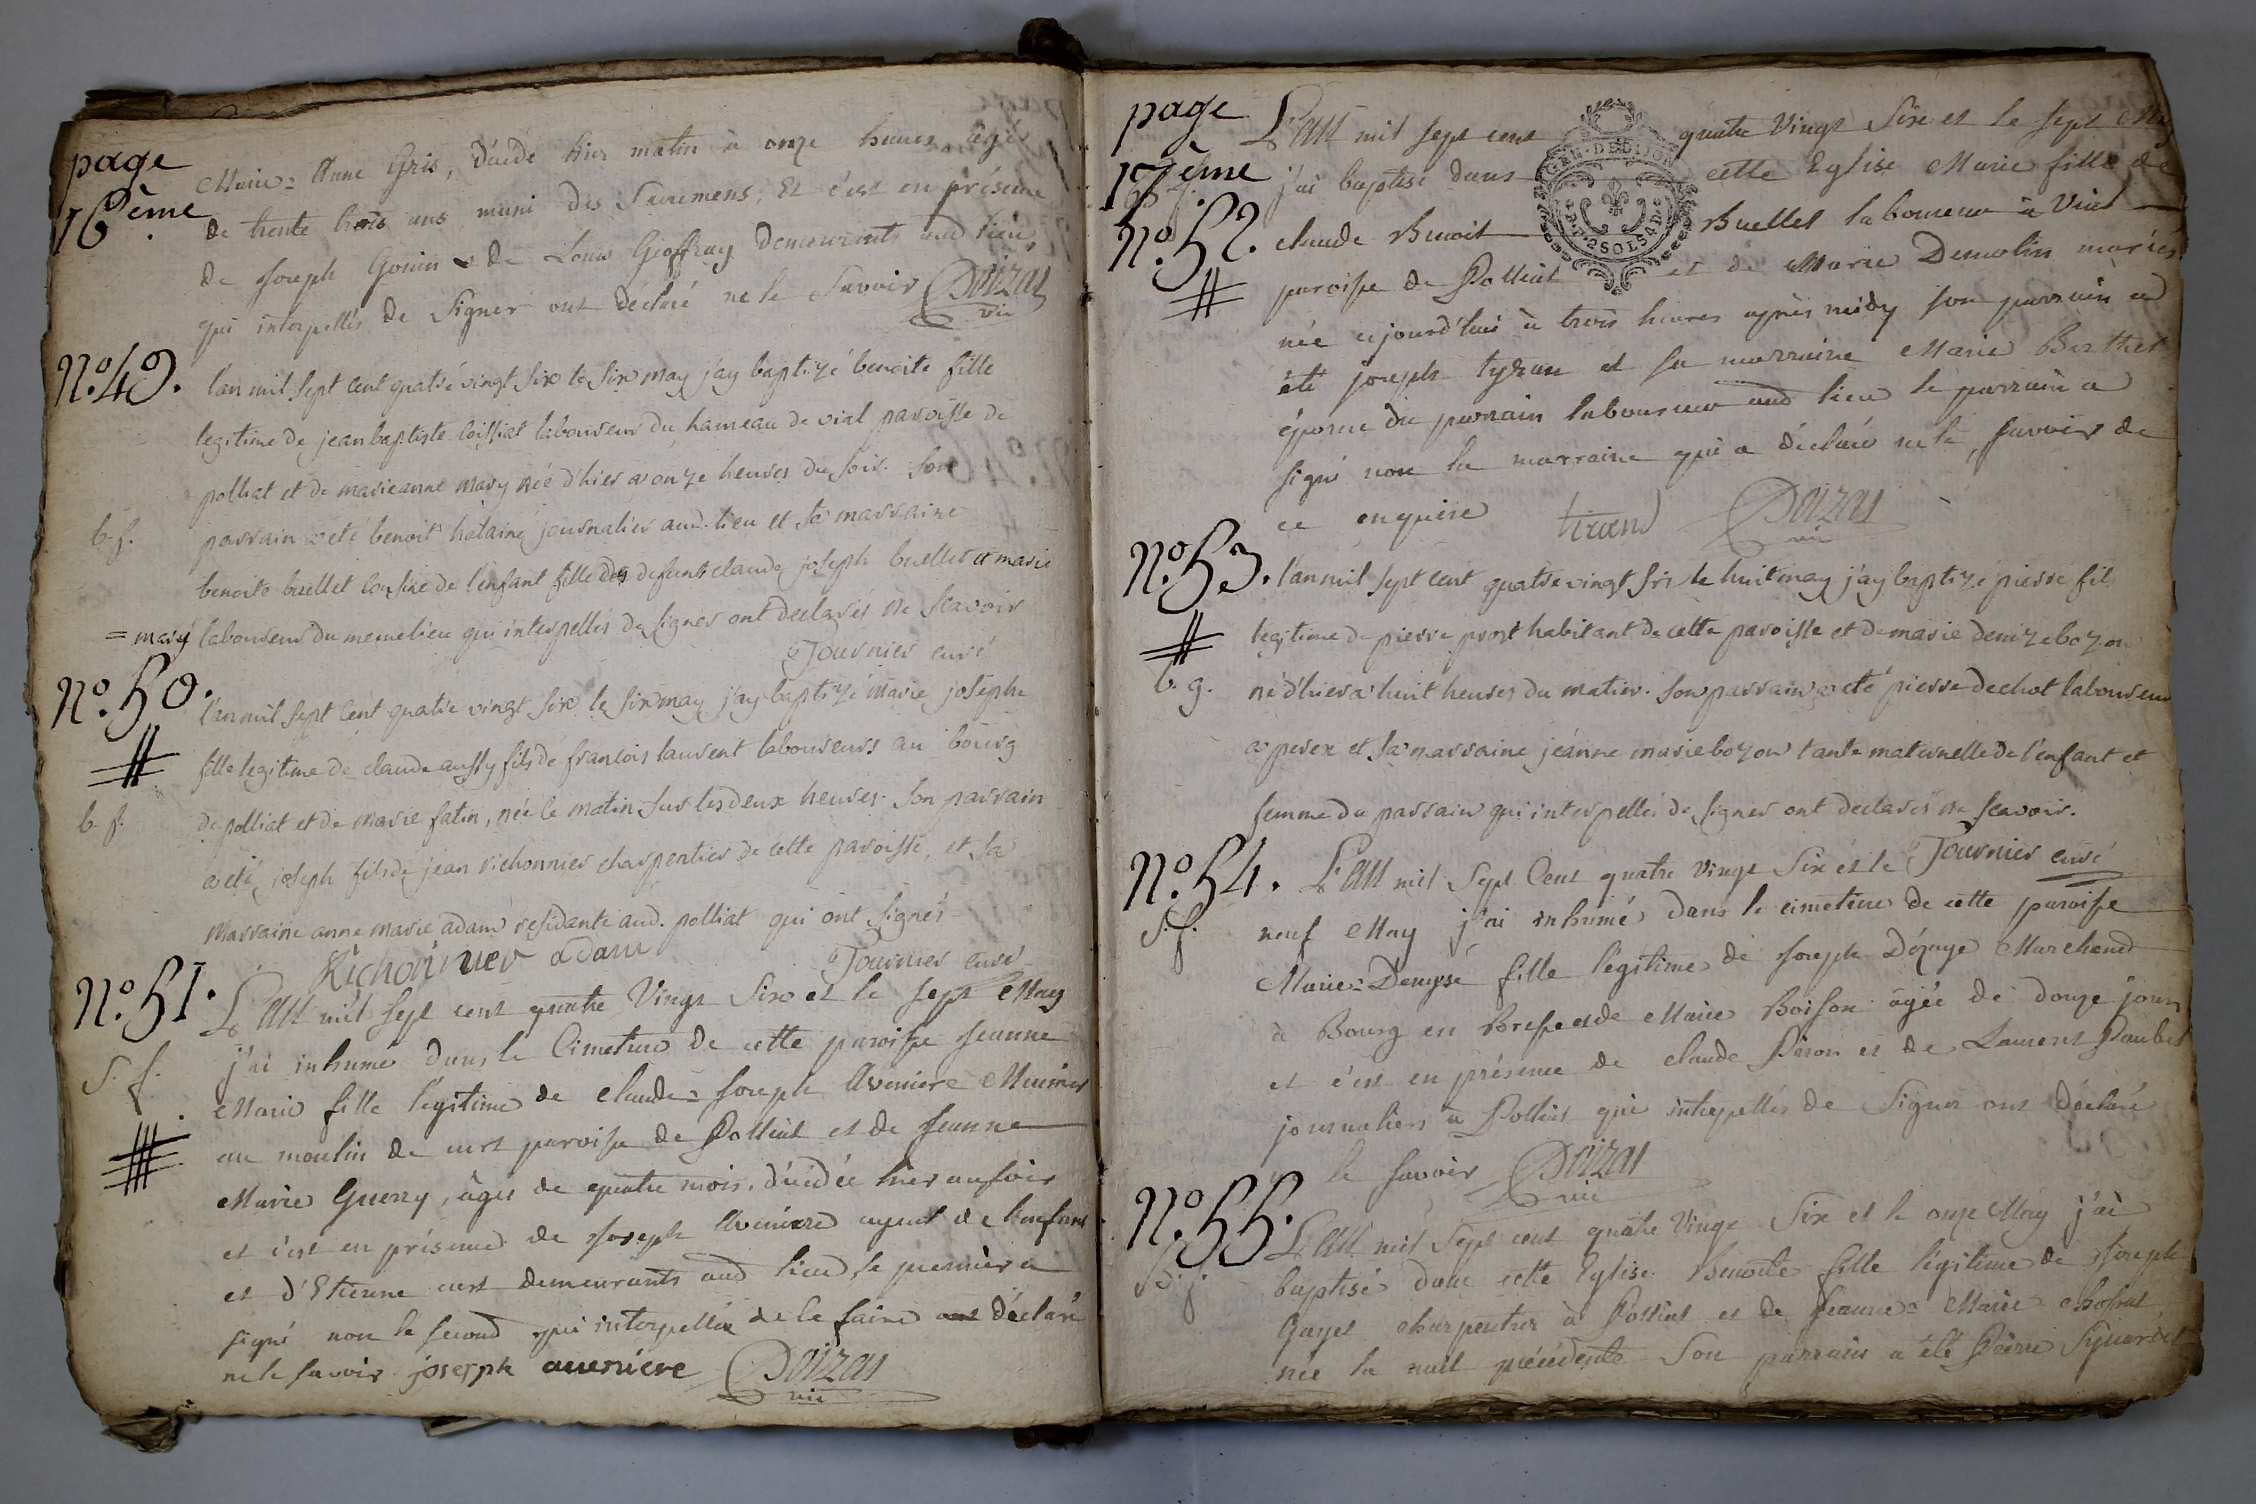 page
16ème
Marie= Anne Gris, décédé hier matin à onze heures âgé
de trente trois ans muni des Sacremens, Et c'est en présence
de Joseph Gonin & de Louis Geoffray demeurants aud lieu,
qui interpellés de Signer ont déclaré ne le Savoir Doizas
vic
N°.49.
l'an mil sept cent quatre vingt six le six may j'ay baptizé benoite fille
legitime de jean baptiste loissiat laboureur du hameau de vial paroisse de
polliat et de marieanne mary née d'hier a onze heures du soir. son
b. f.
parrain a eté benoit journalier aud. lieu et sa marraine
benoite buellet cousine de l'enfant fille des defunts claude joseph buellet et marie
= mary laboureurs du meme lieu qui interpellés de signer ont declarés ne scavoir
Tournier curé
N°.50.
l'an mil sept cent quatre vingt six le six may j'ay baptizé marie josephe
fille legitime de claude aussy fils de francois laurent laboureurs au bourg
b. f.
de polliat et de marie fatin, née le matin sur les deux heures. son parrain
a eté joseph fils de jean richonnier charpentier de cette paroisse, et sa
marraine anne marie adam residante aud. polliat qui ont signés
Richonnier adam
Tournier curé
N°.51.
L'an mil sept cent quatre Vingt Six et le sept May
S. f.
j'ai inhumé dans le Cimetiere de cette paroisse Jeanne
Marie fille légitime de Claude= Joseph Aveniere Meunier
au moulin de curt paroisse de Polliat et de Jeanne
Marie Guerry, âgée de quatre mois, décédée hier au soir
et c'est en présence de Joseph Aveniere ayeul de l'enfant
et d'Etienne curt demeurants aud lieu, le premier a
signé non le second qui interpellé de le faire a déclaré
ne le savoir joserph aveniere Doizas
vic
page
17ème
b. f.
L'an mil sept cent quatre Vingt Six et le sept May
j'ai baptisé dans cette Eglise Marie fille de
N°.52.
claude Benoit Buellet laboureur à Vial
GEN. DE DIJON
P.P. 2 SOLS 4 D
paroisse de Polliat et de Marie Demolin mariés
née cejourd'hui à trois heures après midy son parrain a
été joseph tyran et sa marraine Marie Berthet
épouse du parrain laboureur aud lieu le parrain a
signé non la marraine qui a déclaré ne le savoir de
ce enquise tirand Doizas
vic
N°.53.
l'an mil sept cent quatre vingt six le huit may j'ay baptizé pierre fils
legitime de pierre prost habitant de cette paroisse et de marie denize bozon
b. g.
né d'hier a huit heures du matin. son parrain a eté pierre dechot laboureur
a perex et sa marraine jeanne marie bozon tante maternelle de l'enfant et
femme du parrain qui interpellés de signer ont declarés ne scavoir.
Tournier curé
N°.54.
L'an mil Sept Cent quatre Vingt Six et le
S. f.
neuf May j'ai inhumé dans le cimetiere de cette paroisse
Marie= Denyse fille légitime de Joseph Marchand
à Bourg en Bresse et de Marie Boisson âgée de douze jours
et c'est en présence de claude Péron et de Laurent
journaliers à Polliat qui interpellés de Signer ont déclaré
le savoir Doizas
vic
N°.55.
L'an mil Sept cent quatre Vingt Six et le onze May j'ai
B. f.
baptisé dans cette Eglise Benoite fille légitime de Joseph
Gayet charpentier à Polliat et de Jeanne= Marie
née la nuit précédente Son parrain a été Pierre